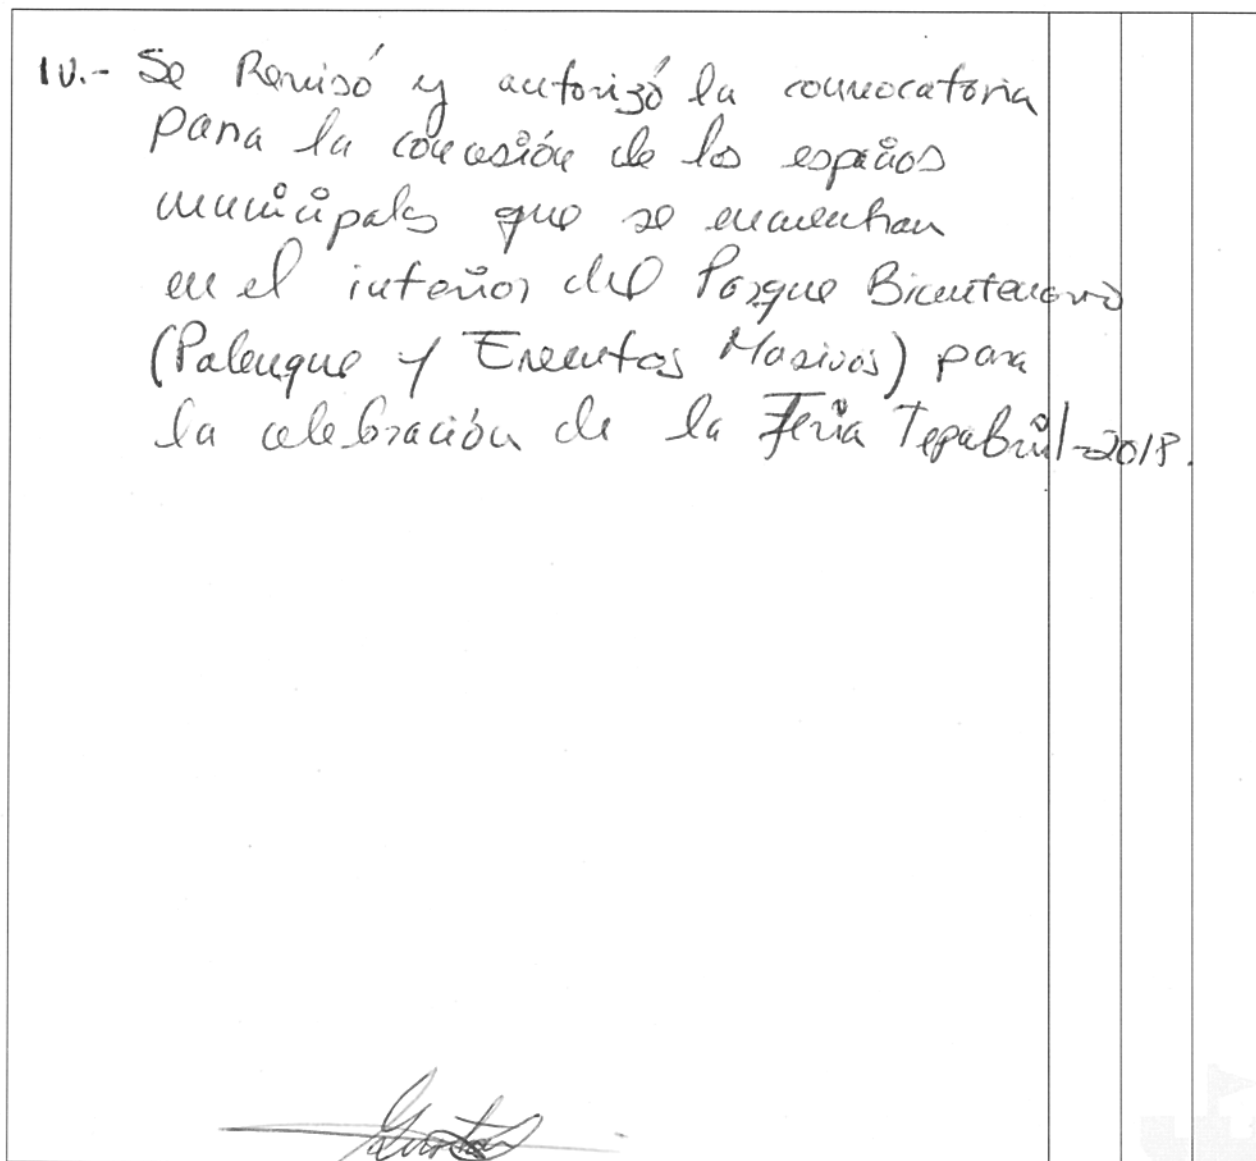 IV.- Se Revisó y autorizó la convocatoria
para la concesión de los espacios
municipales que se encuentran
en el interior del Parque Bicentenario
(Palenque y Eventos Masivos) para
la celebración de la Feria Tepabril-2018.